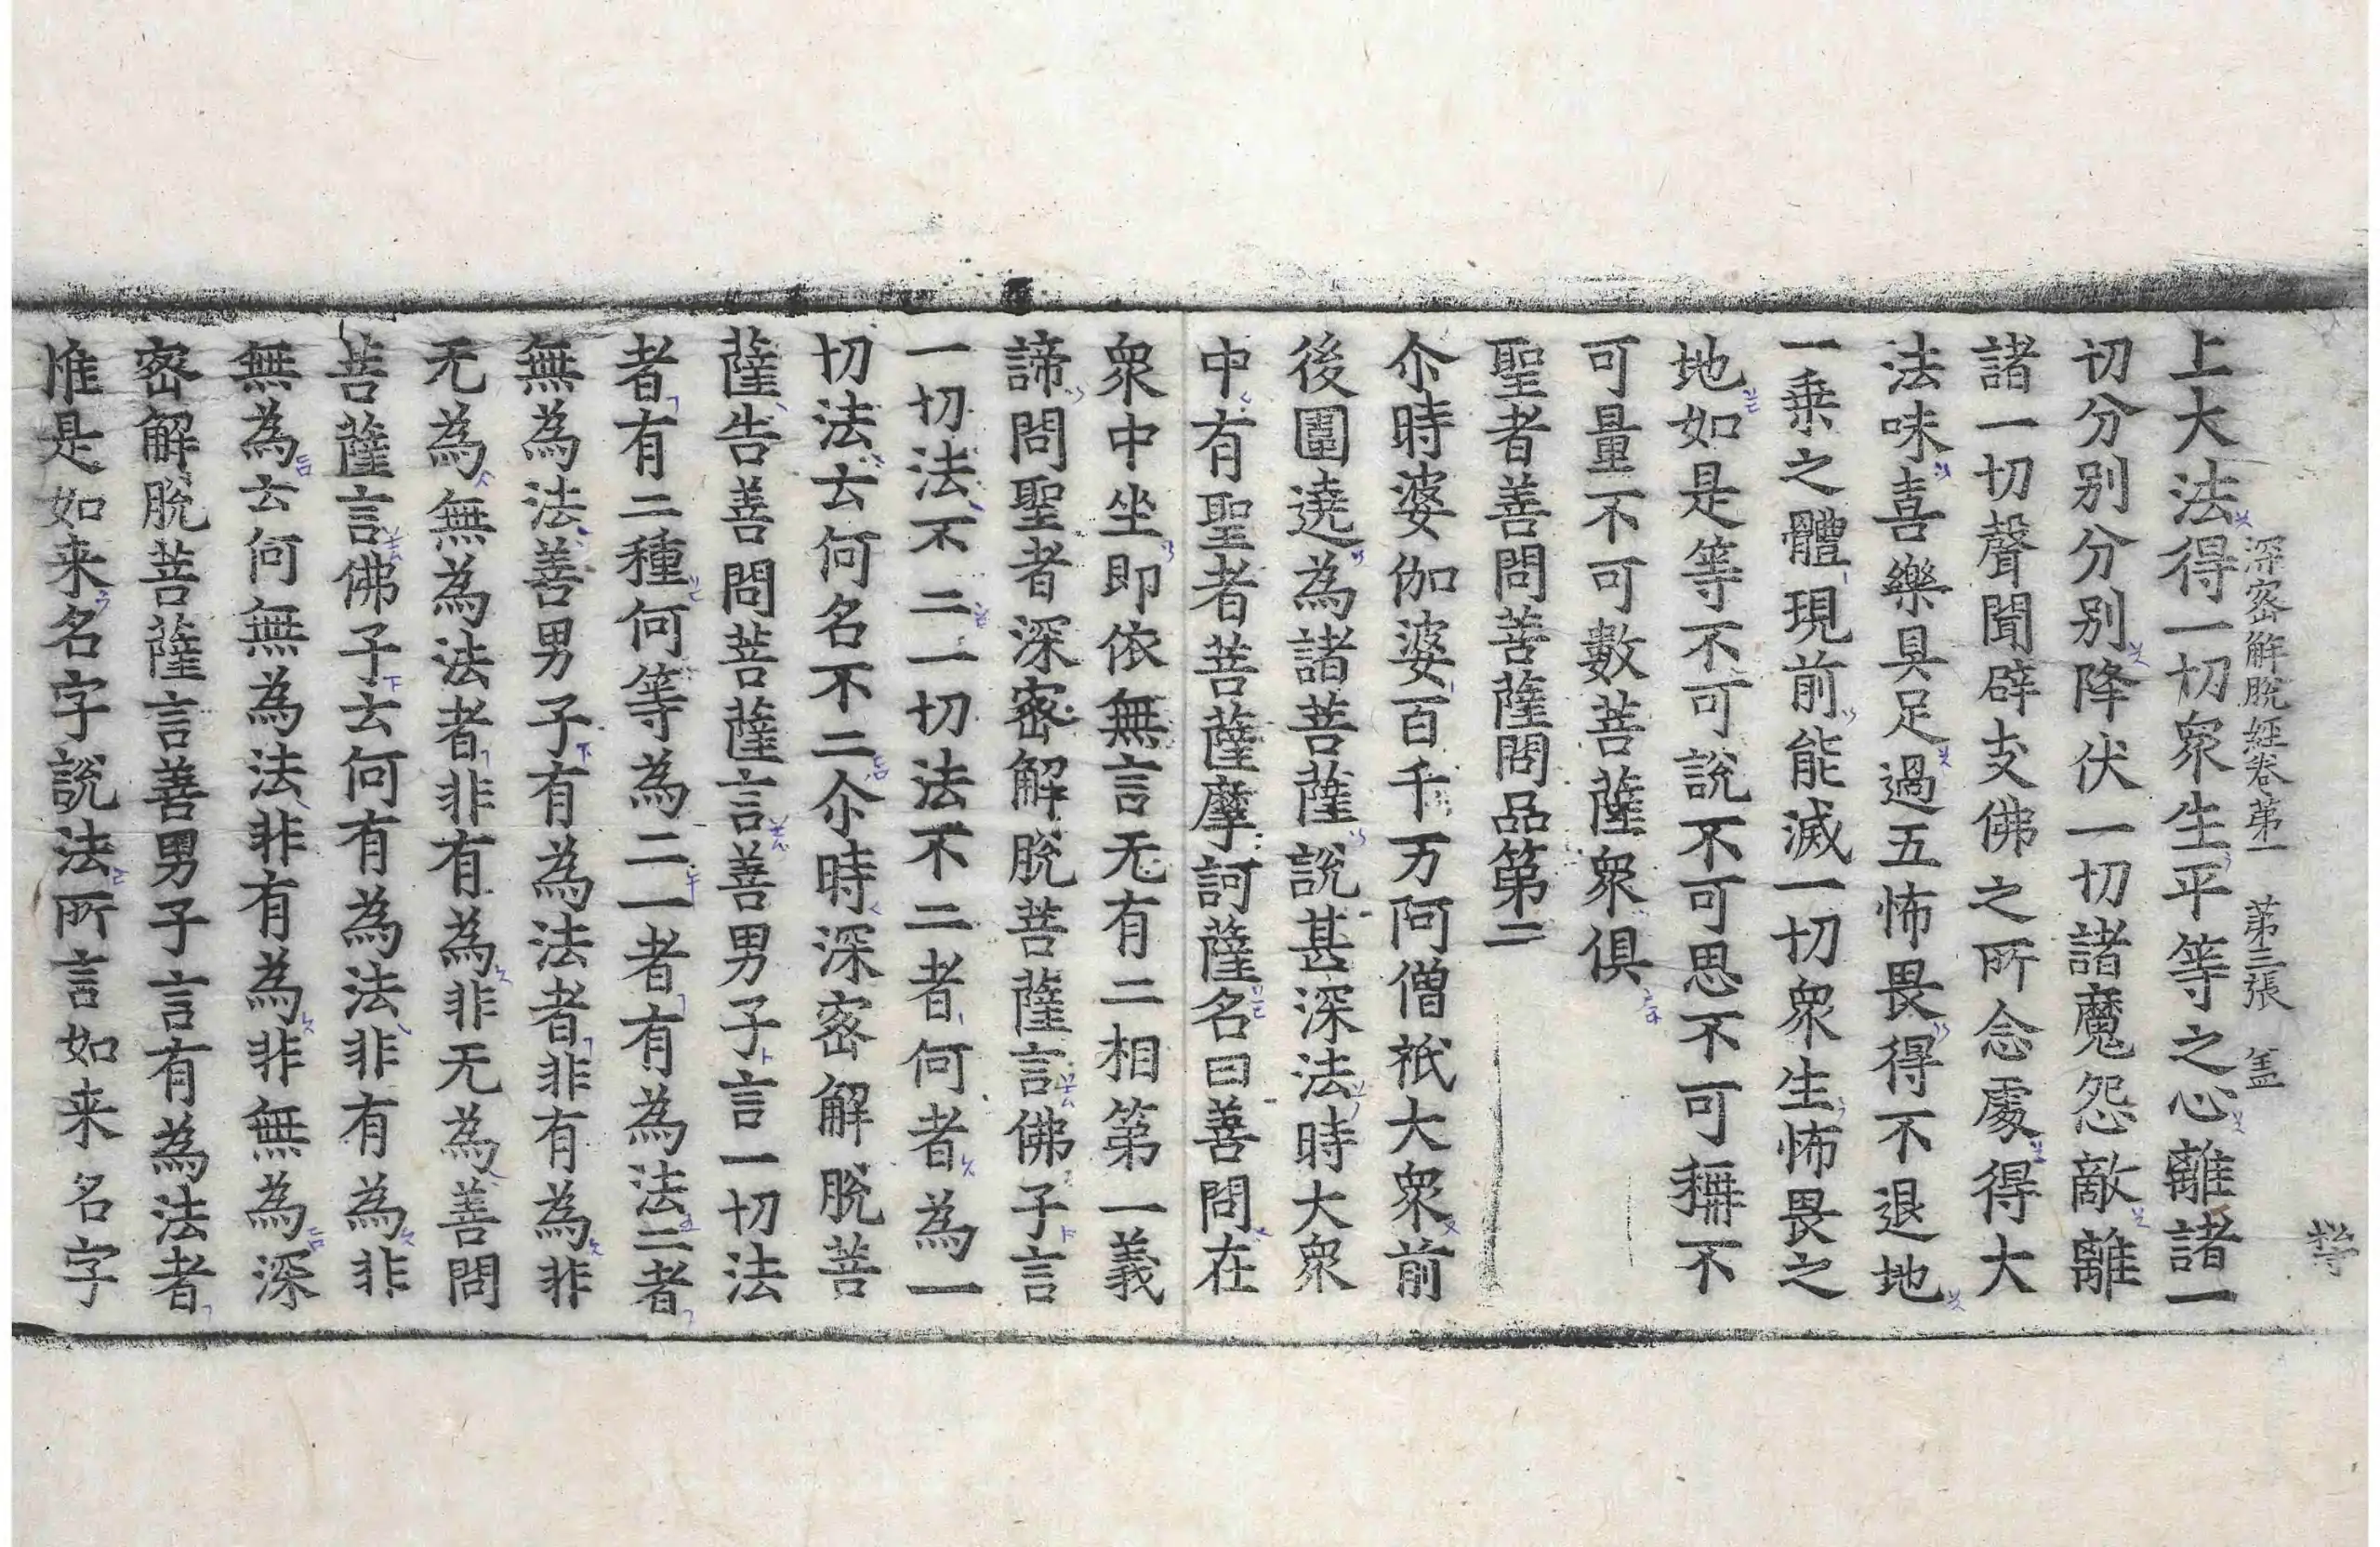 深密解脫經卷第一 第三張
上大法得一切衆生平等之心離諸一
切分別分別降伏一切諸魔怨敵離
諸一切聲聞辟支佛之所念處得大
法味喜樂具足過五怖畏得不退地
一乗之體現前能滅一切衆生怖畏之
地如是等不可說不可思不可稱不
可量不可數菩薩衆俱
聖者善問菩薩問品第二
尒時婆伽婆百千万阿僧祇大衆前
後圍遶為諸菩薩說甚深法時大衆
中有聖者菩薩摩訶薩名曰善問在
衆中坐即依無言无有二相第一義
諦問聖者深密解脫菩薩言佛子言
一切法不二一切法不二者何者為一
切法云何名不二尒時深密解脫菩
薩告善問菩薩言善男子言一切法
者有二種何等為二一者有為法二者
無為法善男子有為法者非有為非
无為無為法者非有為非无為善問
菩薩言佛子云何有為法非有為非
無為云何無為法非有為非無為深
密解脫菩薩言善男子言有為法者
惟是如来名字說法所言如来名字